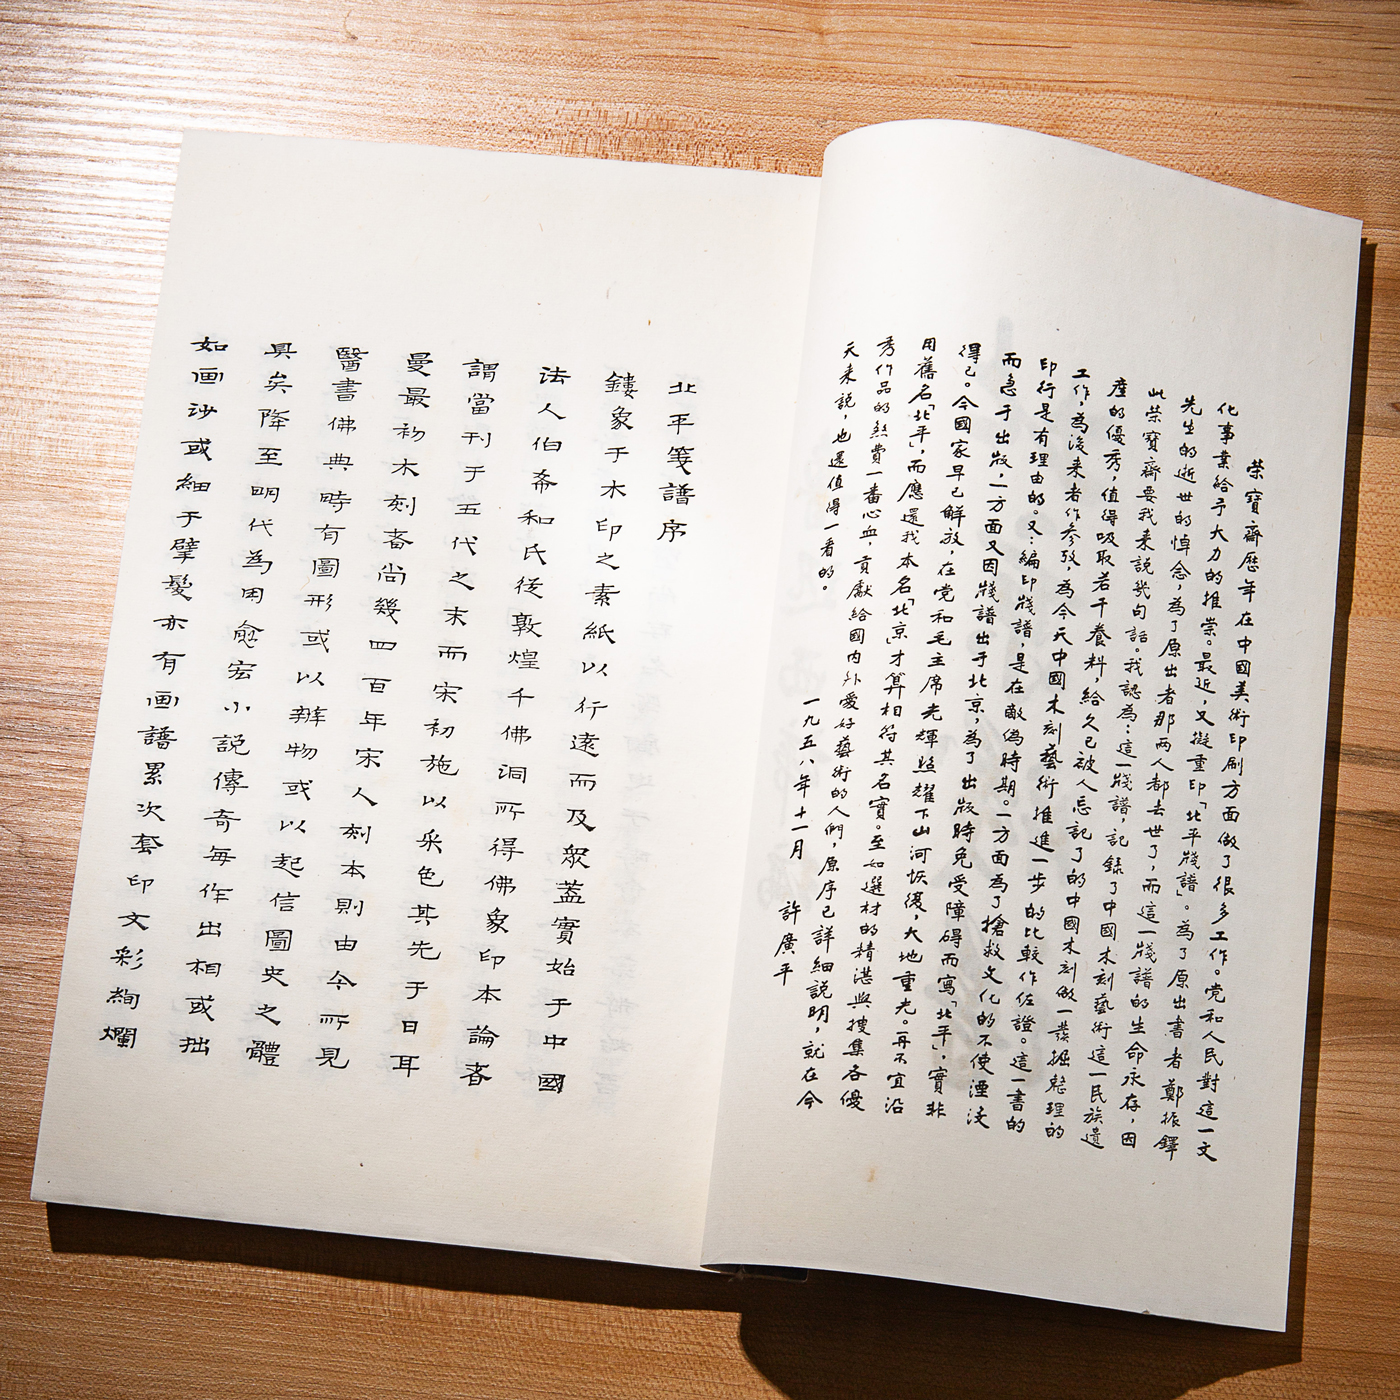 榮寶齋歷年在中國美術印刷方面做了很多工作。党和人民對這一文
化事業給予大力的推崇。最近,又擬重印「北平牋譜」。為了原出書者鄭振鐸
先生的逝世的悼念,為了原出者那两人都去世了,而這一牋譜的生命永存,因
此榮寶齋要我来說幾句話。我認為:這一牋譜,記錄了中國木刻藝術這一民族遺
產的優秀,值得吸取若干養料,給久已被人忘記了的中國木刻做一發掘整理的
工作,為後来者作参攷,為今天中國木刻藝術推進一步的比較作佐證。這一書的
印行是有理由的。又:編印牋譜,是在敵偽時期。一方面為了搶救文化的不使湮没
而急于出版,一方面又因牋譜出于北京,為了出版時免受障碍而寫「北平」,實非
得已。今國家早已解放,在党和毛主席光輝照耀下山河恢復,大地重光。再不宜沿
用舊名「北平」,而應還我本名「北京」才算相符其名實。至如選材的精湛與搜集各優
秀作品的煞費一番心血,貢獻給國內外愛好藝術的人們,原序已詳細說明,就在今
天来說,也還值得一看的。
一九五八年十一月 許廣平
北平箋譜序
鏤象于木印之素紙以行遠而及衆蓋實始于中國
法人伯希和氏從敦煌千佛洞所得佛象印本論者
謂當刊于五代之末而宋初施以采色其先于日耳
曼最初木刻者尚幾四百年宋人刻本則由今所見
醫書佛典時有圖形或以辨物或以起信圖史之體
具矣降至明代為用愈宏小說傳奇每作出相或拙
如画沙或細于擘髮亦有画譜累次套印文彩絢爛